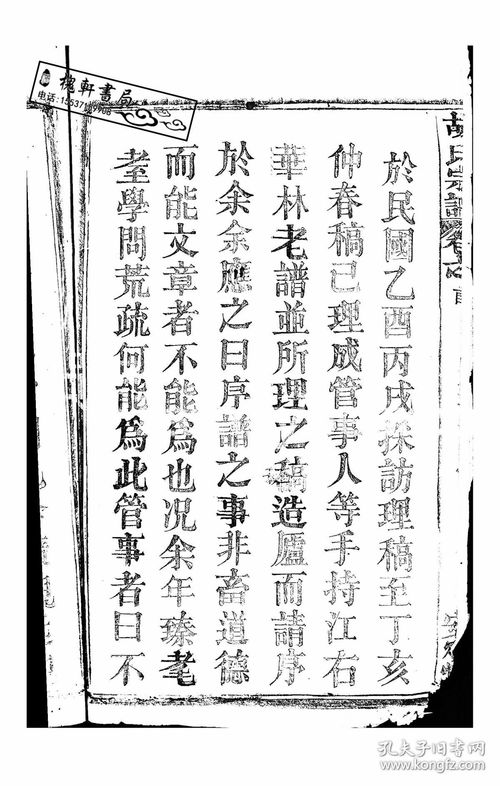 胡氏宗譜卷之首
於民國乙酉丙戌採訪理稿至丁亥
仲春稿已理成管事人等手持江右
華林老譜並所理之稿造廬而請序
於余余應之曰序譜之事非畜道德
而能文章者不能爲也况余年臻耄
耋學問荒疏何能爲此管事者曰不
槐軒書局
孔夫子旧书网
www.kongfz.com